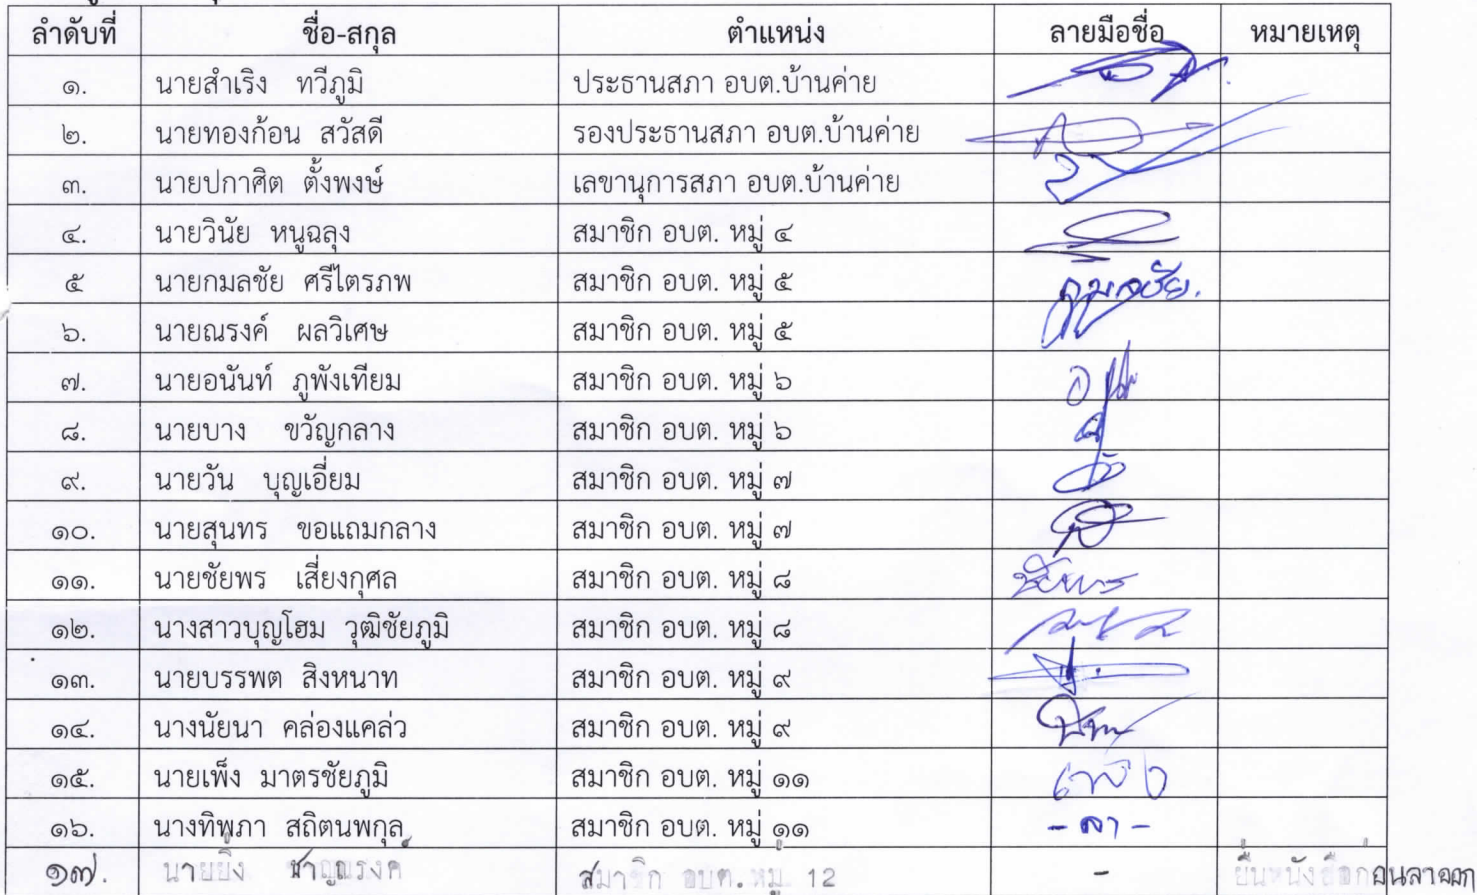 ลำดับที่ ชื่อ-สกุล ตำแหน่ง ลายมือชื่อ หมายเหตุ
๑. นายสำเริง ทวีภูมิ ประธานสภา อบต.บ้านค่าย
๒. นายทองก้อน สวัสดี รองประธานสภา อบต.บ้านค่าย
๓. นายปกาศิต ตั้งพงษ์ เลขานุการสภา อบต.บ้านค่าย
๔. นายวินัย หนูฉลุง สมาชิก อบต. หมู่ ๔
๕ นายกมลชัย ศรีไตรภพ สมาชิก อบต. หมู่ ๕ กมลชัย.
๖. นายณรงค์ ผลวิเศษ สมาชิก อบต. หมู่ ๕
๗. นายอนันท์ ภูพังเทียม สมาชิก อบต. หมู่ ๖
๘. นายบาง ขวัญกลาง สมาชิก อบต. หมู่ ๖
๙. นายวัน บุญเอี่ยม สมาชิก อบต. หมู่ ๗
๑๐. นายสุนทร ขอแถมกลาง สมาชิก อบต. หมู่ ๗
๑๑. นายชัยพร เสี่ยงกุศล สมาชิก อบต. หมู่ ๘ ชัยพร
๑๒. นางสาวบุญโฮม วุฒิชัยภูมิ สมาชิก อบต. หมู่ ๘
๑๓. นายบรรพต สิงหนาท สมาชิก อบต. หมู่ ๙
๑๔. นางนัยนา คล่องแคล่ว สมาชิก อบต. หมู่ ๙
๑๕. นายเพ็ง มาตรชัยภูมิ สมาชิก อบต. หมู่ ๑๑ เพ็ง
๑๖. นางทิพภา สถิตนพกุล สมาชิก อบต. หมู่ ๑๑ - ลา -
๑๗. นายยิ่ง ชาญณรงค์ สมาชิก อบต. หมู่ 12 - ยื่นหนังสือก่อนลาออก